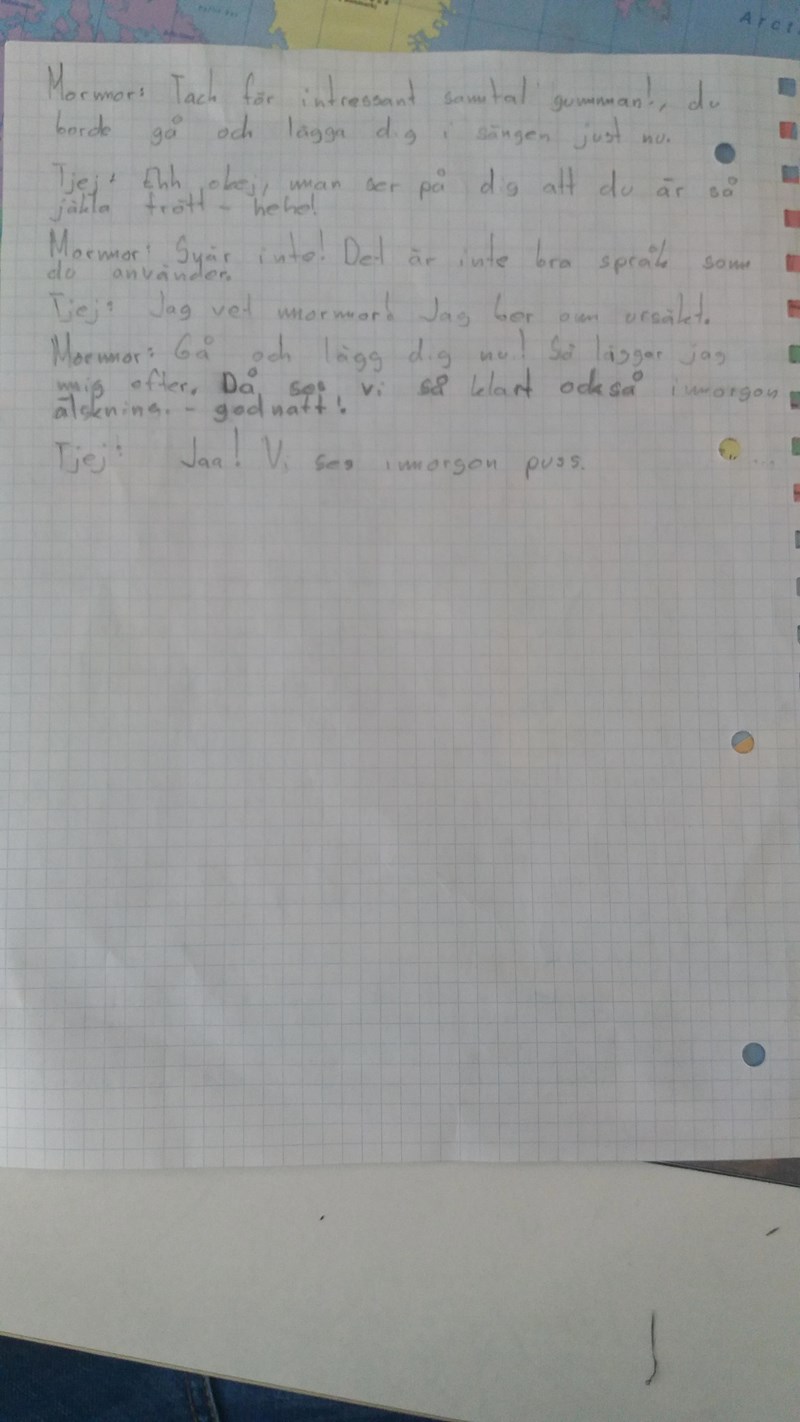 Arct
Mormor: Tack för intressant samtal gumman!, du
borde gå och lägga dig i sängen just nu.
Tjej: Ehh, okej, man ser på dig att du är så
jäkla trött - hehe!
Mormor: Svär inte! Det är inte bra språk som
du använder.
Tjej: Jag vet mormor! Jag ber om ursäkt.
Mormor: Gå och lägg dig nu! Så lägger jag
mig efter. Då ses vi så klart också imorgon
älskning. - godnatt!
Tjej: Jaa! Vi ses imorgon puss.